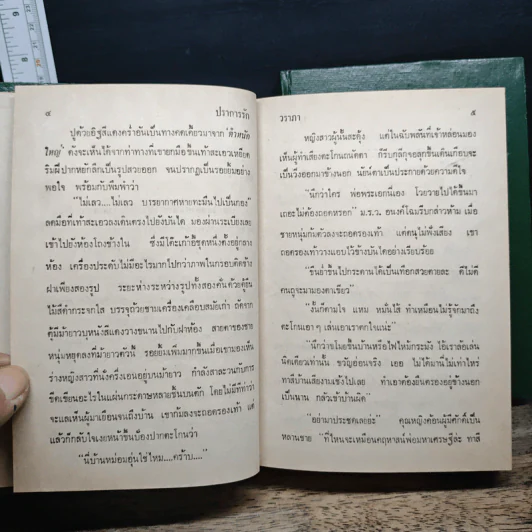 ๔ ปราการรัก
ปูด้วยอิฐสีแดงคร่ำอันเป็นทางคดเคี้ยวมาจาก
ใหญ่' ดังจะเห็นได้จากท่าทางที่เขายกมือขึ้นเท้าสะเอวเหยียด
ริมฝีปากหยักลึกเป็นรูปสวยออก จนปรากฏเป็นรอยยิ้มอย่าง
พอใจ พร้อมกับพึมพำว่า
"ไม่เลว....ไม่เลว บรรยากาศหายตะมื่นไปเป็นกอง"
ลดมือที่เท้าสะเอวลงเดินตรงไปยังบันได มองผ่านระเบียงเลย
เข้าไปยังห้องโถงข้างใน ซึ่งมีโต๊ะเก้าอี้ชุดหนึ่งตั้งอยู่กลาง
ห้อง เครื่องประดับไม่มีอะไรมากไปกว่าภาพในกรอบติดข้าง
ฝาเพียงสองรูป ระยะห่างระหว่างรูปทั้งสองคั่นด้วยตู้อื่น
ไม้สีดำกระจกใส บรรจุถ้วยชามเครื่องเคลือบสมัยเก่า ถัดจาก
ตู้มีม้ายาวบุหนังสีแดงวางขนานไปกับฝาห้อง สายตาของชาย
หนุ่มหยุดลงที่ม้ายาวตัวนี้ รอยยิ้มเพิ่มมากขึ้นเมื่อเขามองเห็น
ร่างหญิงสาวที่นั่งครึ่งเอนอยู่บนม้ายาว กำลังสาละวนกับการ
ขีดเขียนอะไรในแผ่นกระดาษหลายชั้นบนตัก โดยไม่มีทีท่าว่า
จะแลเห็นผู้มาเยือนจนถึงบ้าน เขาก้มลงจะถอดรองเท้า แต่
แล้วก็กลับใจเงยหน้าขึ้นป้องปากตะโกนว่า
"นี่บ้านหม่อมอุ่นใช่ไหม....คร้าบ...."
วราภา ๕
หญิงสาวผู้นั้นสะดุ้ง แต่ในฉับพลันที่เจ้าหล่อนมอง
เห็นผู้ทำเสียงตะโกนถนัดตา ก็รีบกุลีกุจอลุกขึ้นเดินเกือบจะ
เป็นวิ่งออกมาข้างนอก นัยน์ตาเป็นประกายด้วยความดีใจ
"นึกว่าใคร พ่อพระเอกนี่เอง โอวาทไปได้ขึ้นมา
เถอะไม่ต้องถอดหรอก" ม.ร.ว. อนงค์โฉมรีบกล่าวห้าม เมื่อ
ชายหนุ่มก้มตัวลงจะถอดรองเท้า แต่คนุไม่ฟังเสียง เขา
ถอดรองเท้าวางแอบไว้ข้างบันไดอย่างเรียบร้อย
"ขืนย่ำขึ้นไปกระดานได้เป็นเทือกสวยตายละ ดีไม่ดี
คนถูจะมามองตาเขียว"
"งั้นก็ตามใจ แหม หมั่นไส้ ทำเหมือนไม่รู้จักมาถึง
ตะโกนเอา ๆ เล่นเอาเราตกใจแน่ะ"
"นึกว่าขโมยขึ้นบ้านหรือไฟไหม้กระมัง โธ่เราล้อเล่น
นิดเดียวเท่านั้น ขวัญอ่อนจริง เธอ ไม่ได้มานี่ไม่เท่าไหร่
ทาสีบ้านเสียงามเช้งไปเลย ทำเอาต้องยืนตรองอยู่ข้างนอก
เป็นนาน กลัวเข้าบ้านผิด"
"อย่ามาประชดเลยย่ะ" คุณหญิงค้อนผู้มีศักดิ์เป็น
หลานชาย "ที่ไหนจะเหมือนคฤหาสน์พ่อมหาเศรษฐีล่ะ ทาสี